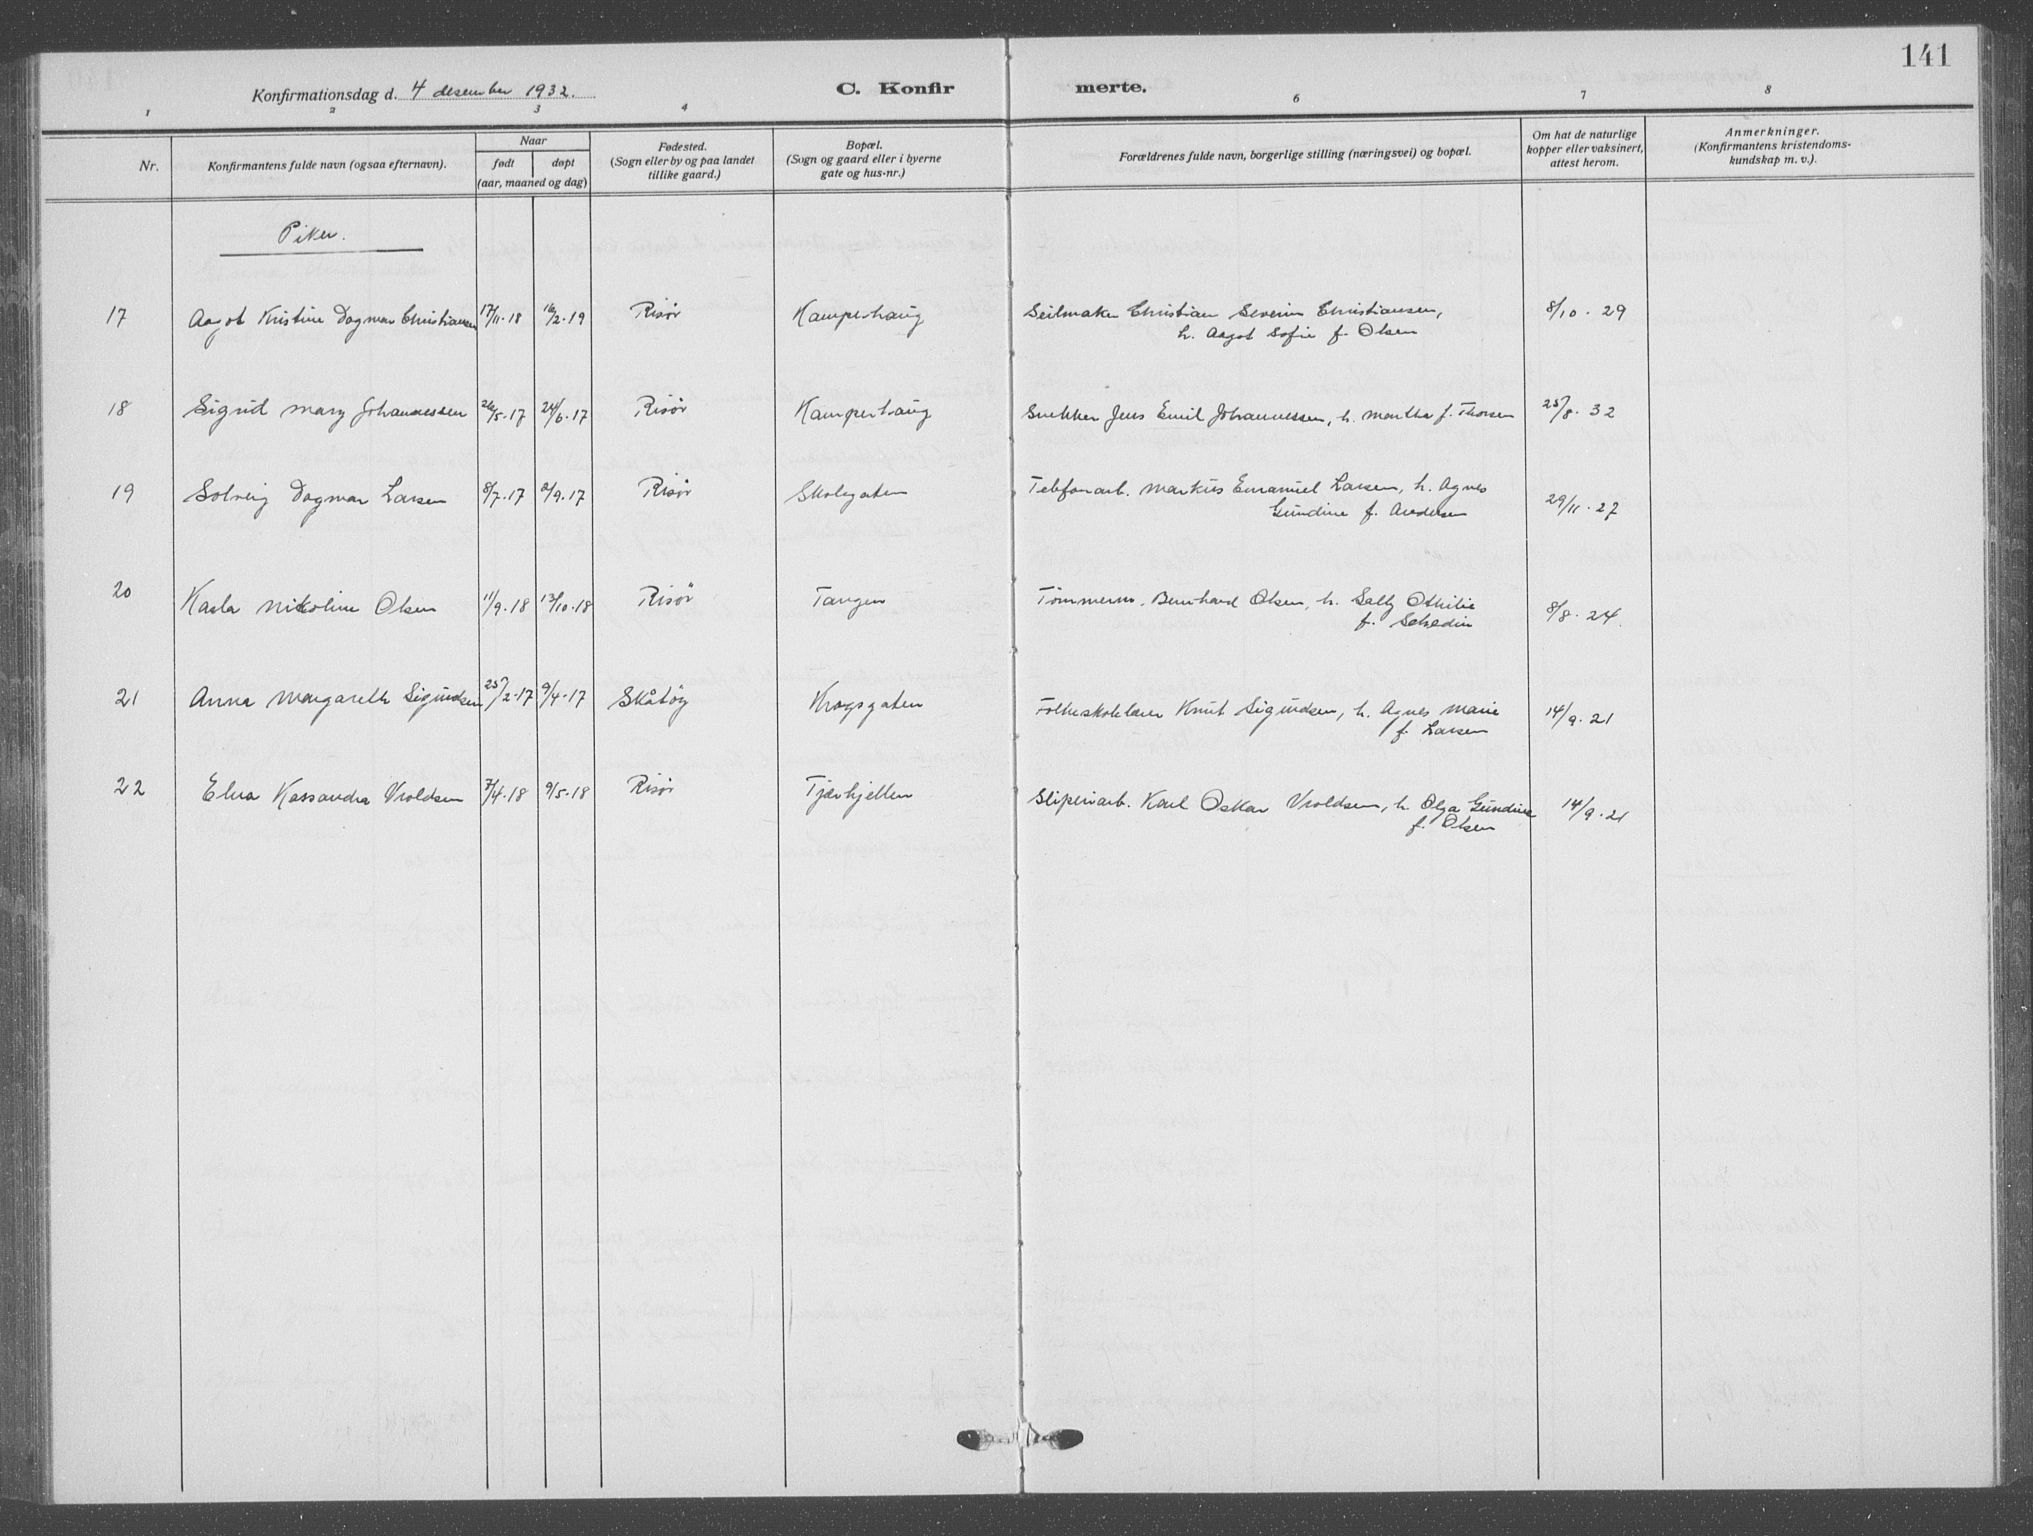 141
Konfirmationsdag d. 4 desember 1932.
C. Konfirmerte.
1 2 3 4 6 7 8
Nr.
Konfirmantens fulde navn (ogsaa efternavn).
Naar
født døpt
(aar, maaned og dag)
Fødested.
(Sogn eller by og paa landet
tillike gaard.)
Bopæl.
(Sogn og gaard eller i byerne
gate og hus-nr.)
Forældrenes fulde navn, borgerlige stilling (næringsvei) og bopæl.
Om hat de naturlige
kopper eller vaksinert,
attest herom.
Anmerkninger.
(Konfirmantens kristendoms-
kundskap m. v.).
Piker.
17 Aagot Kristine Dagmar Christiansen 17/11-18 16/2-19 Risør Kamperhaug Seilmaker Christian Severin Christiansen, 8/10-29
h. Aagot Sofie f. Olsen
18 Sigrid Mary Johannessen 26/5-17 24/6-17 Risør Kamperhaug Snekker Jens Emil Johannessen, h. Martha f. Thorsen 25/8-32
19 Solveig Dagmar Larsen 8/7-17 2/9-17 Risør Skolegaten Telefonarb. Markus Emanuel Larsen, h. Agnes 29/11-27
Gundine f. Andersen
20 Karla Nikoline Olsen 11/9-18 13/10-18 Risør Tangen Tømmerm. Bernhard Olsen, h. Sally Othilie 8/8-24.
f. Schedin
21 Anna Margareth Sigundsen 25/2-17 9/4-17 Skåtøy Kragsgaten Folkeskolelærer Knut Sigundsen, h. Agnes Marie 14/9-21
f. Larsen
22 Elna Kassandra Vroldsen 7/4-18 9/5-18 Risør Tjærkjellen Sliperiarb. Karl Oskar Vroldsen, h. Olga Gundine 14/9-21
f. Olsen